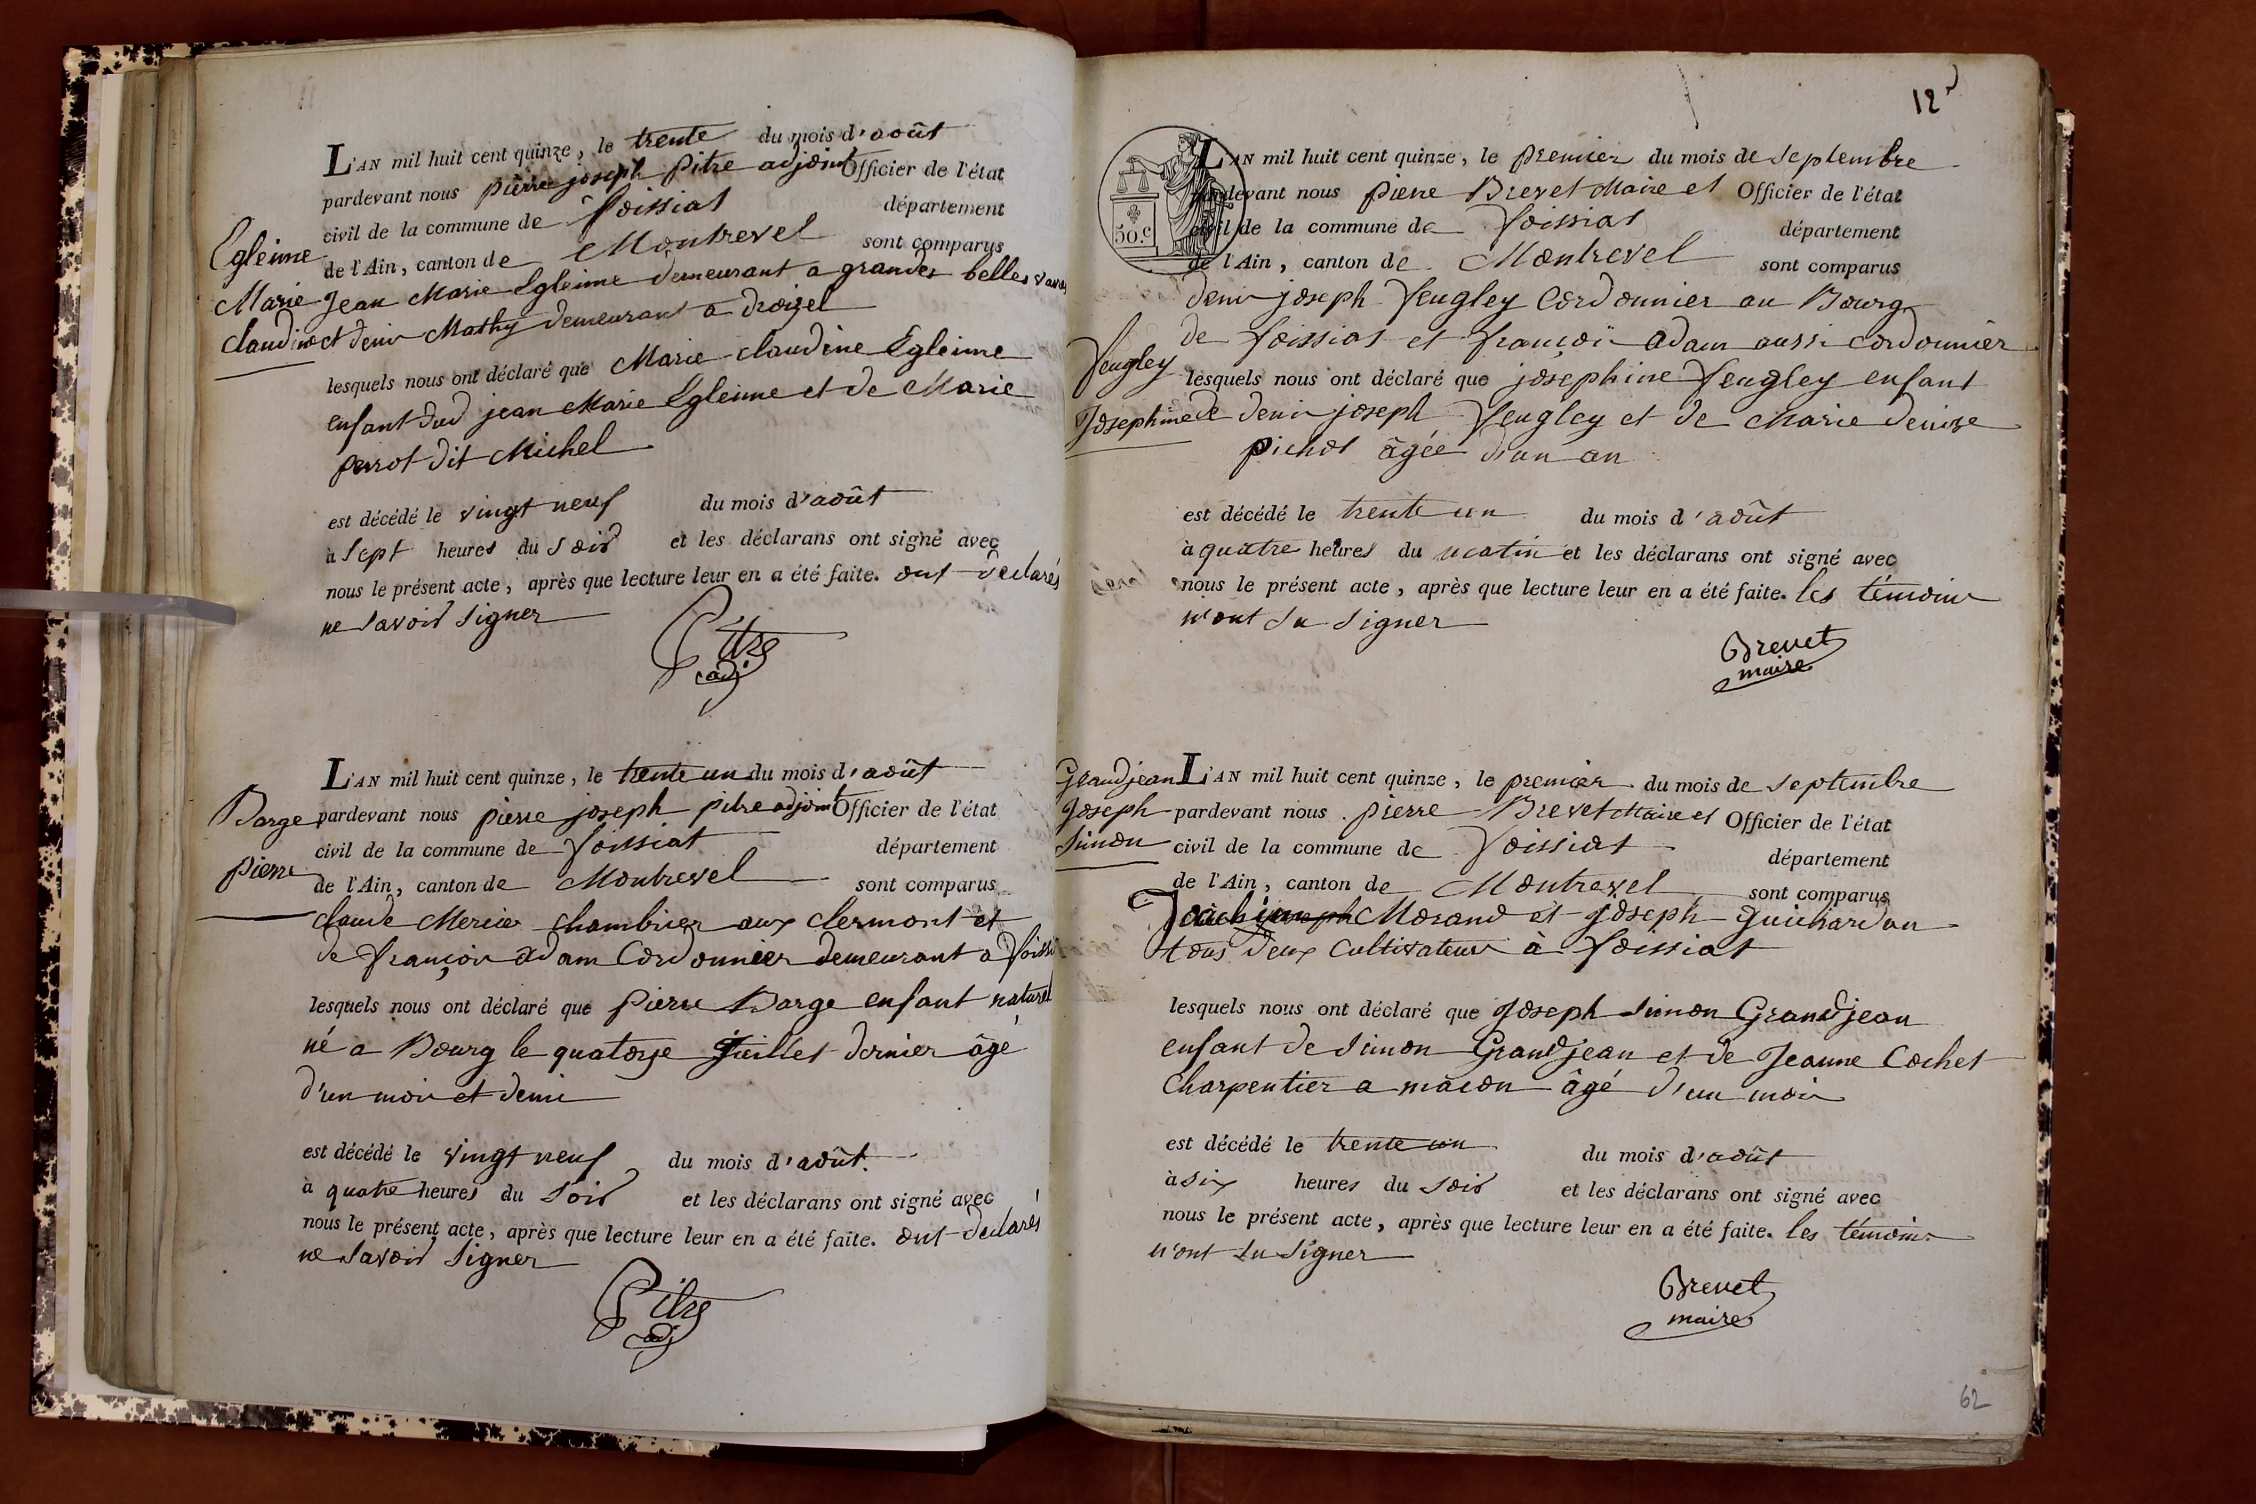 L'AN mil huit cent quinze, le trente du mois d'août
pardevant nous pierre joseph pitre adjoint Officier de l'état
civil de la commune de foissiat département
de l'Ain, canton de Montrevel sont comparus
Egleinne
Marie
claudine
Jean Marie Egleinne demeurant a grandes belles vavr
et denis Mathy demeurant a droizel
lesquels nous ont déclaré que Marie claudine Egleinne
enfant dud jean Marie Egleinne et de Marie
perrot dit Michel
est décédé le vingt neuf du mois d'août
à sept heures du soir et les déclarans ont signé avec
nous le présent acte, après que lecture leur en a été faite. ont declarés
ne savoir signer
Pitre
adj
L'AN mil huit cent quinze, le trente un du mois d'août
Barge
pierre
pardevant nous pierre joseph pitre adjoint Officier de l'état
civil de la commune de foissiat département
de l'Ain, canton de Montrevel sont comparus
claude Mercier chambrier aux clermont et
de françois adam Cordonnier demeurant a foissi
lesquels nous ont déclaré que pierre Barge enfant naturel
né a Bourg le quatorze juillet dernier âgé
d'un mois et demi
est décédé le vingt neuf du mois d'août
à quatre heures du soir et les déclarans ont signé avec
nous le présent acte, après que lecture leur en a été faite. ont declarés
ne savoir signer
Pitre
adj
12
50.c
L'AN mil huit cent quinze, le premier du mois de septembre
pardevant nous pierre Brevet Maire et Officier de l'état
civil de la commune de foissiat département
de l'Ain, canton de Montrevel sont comparus
denis joseph feugley Cordonnier au Bourg
de foissiat et françois adam aussi cordonnier
feugley
Josephine
lesquels nous ont déclaré que josephine feugley enfant
de denis joseph feugley et de Marie denize
pichot âgée d'un an
est décédé le trente un du mois d'août
à quatre heures du matin et les déclarans ont signé avec
nous le présent acte, après que lecture leur en a été faite. les témoins
n'ont su signer
Brevet
maire
Grandjean
Joseph
simon
L'AN mil huit cent quinze, le premier du mois de septembre
pardevant nous pierre Brevet Maire et Officier de l'état
civil de la commune de foissiat département
de l'Ain, canton de Montrevel sont comparus
Morand et joseph guichardon
tous deux Cultivateurs à foissiat
lesquels nous ont déclaré que Joseph simon Grandjean
enfant de simon Grandjean et de Jeanne Cochet
Charpentier a macon âgé d'un mois
est décédé le trente un du mois d'août
à six heures du soir et les déclarans ont signé avec
nous le présent acte, après que lecture leur en a été faite. les témoins
n'ont su signer
Brevet
maire
62